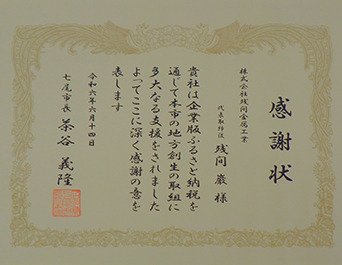 感謝状
株式会社残間金属工業
代表取締役 残间 巌 様
貴社は企業版ふるさと納税を
通じて本市の地方創生の取組に
多大なる支援をされました
よってここに深く感謝の意を
表します
令和六年六月十四日
七尾市長 茶谷 義隆